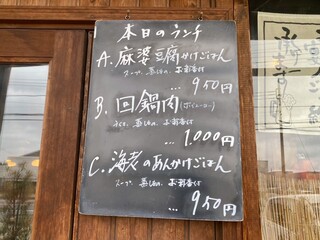 本日のランチ
A. 麻婆豆腐かけごはん
スープ、蒸しもの、お新香付
... 950円
B. 回鍋肉(ホイコーロー)
蒸しもの、お新香付
... 1.000円
C. 海老のあんかけごはん
スープ、蒸しもの、お新香付
... 950円